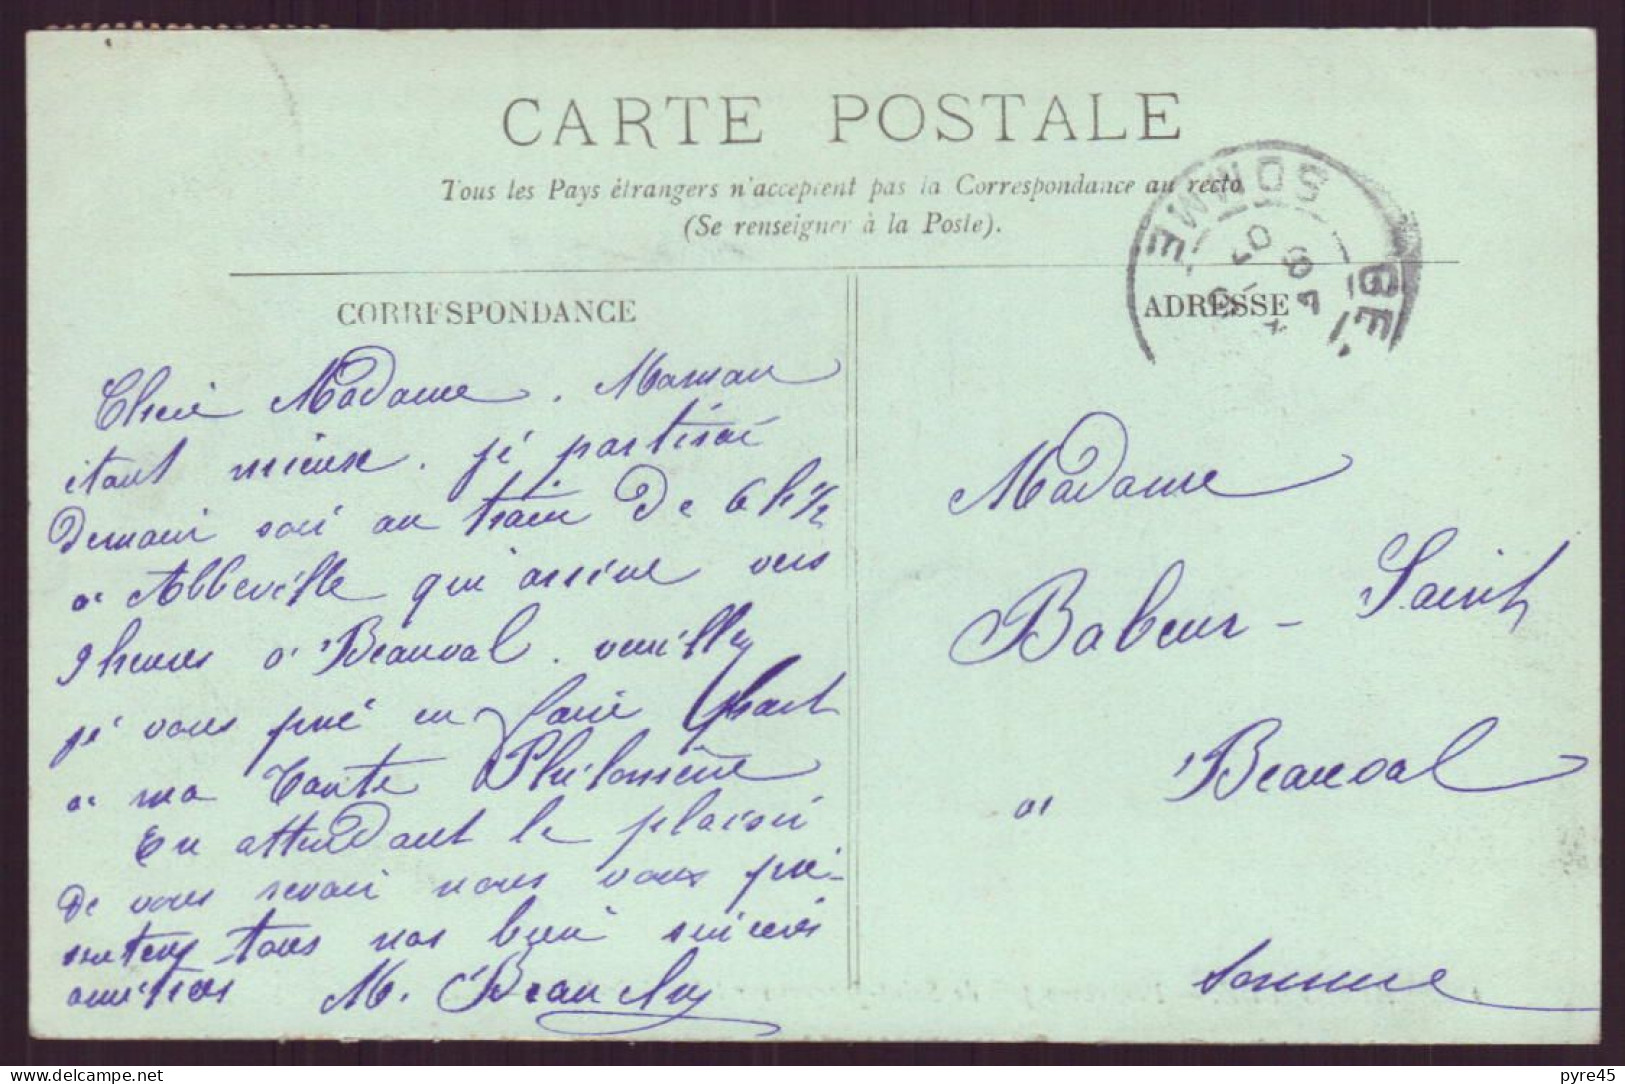 CARTE POSTALE
Tous les Pays étrangers n'acceptent pas la Correspondance au recto
(Se renseigner à la Poste).
CORRESPONDANCE
ADRESSE
SOMME
BE
Chère Madame. Maman
étant mieux. je partirai
demain soir au train de 6 h 1/2
à Abbeville qui arrive vers
9 heures à Beauval. veuillez
je vous prie en faire part
à ma Tante Philomène
En attendant le plaisir
de vous revoir nous vous pré-
sentons tous nos bien sincères
amitiés M.
Madame
Babeur-Saint
à Beauval
Somme
pyre45